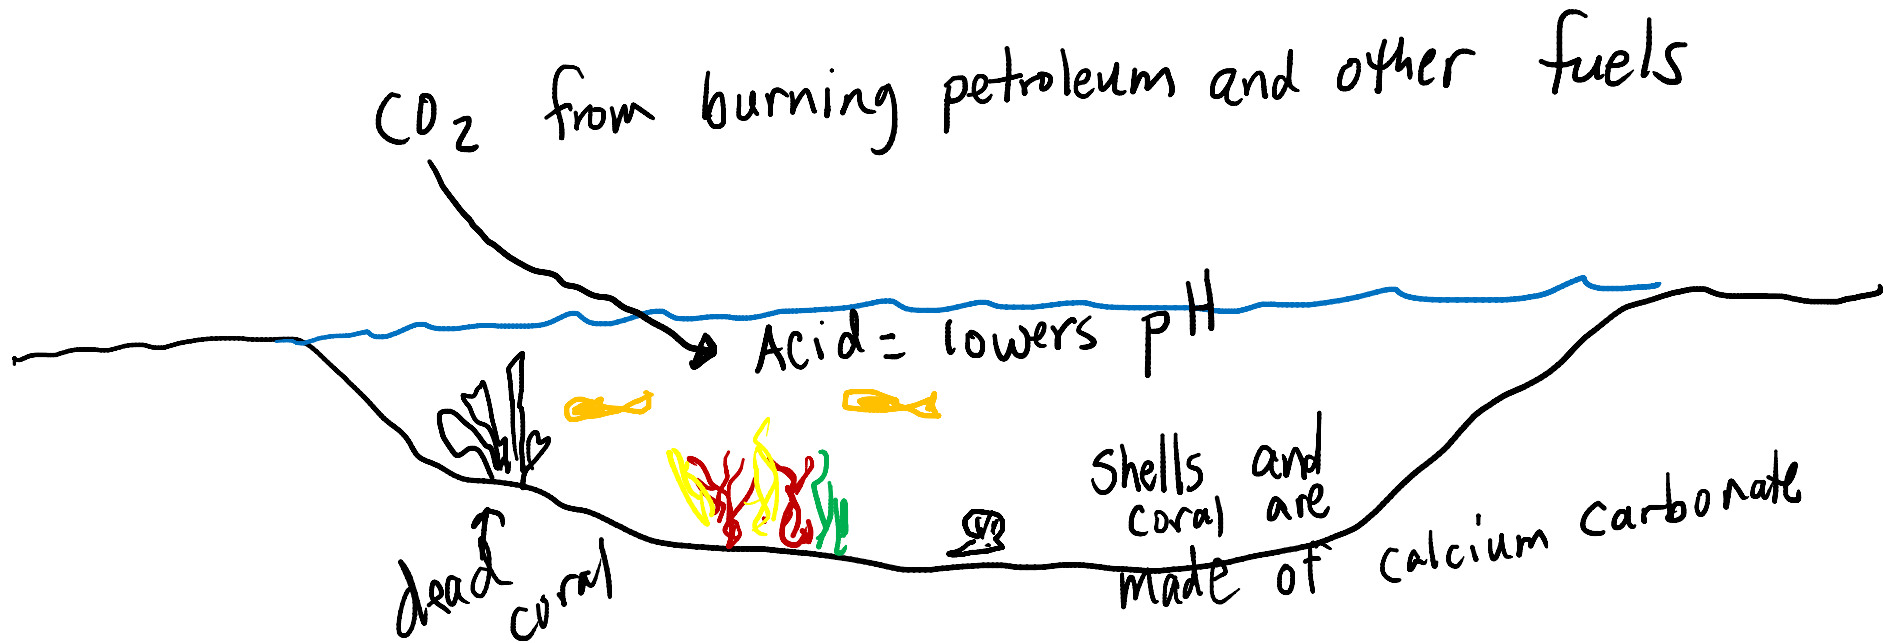 CO2 from burning petroleum and other fuels
Acid = lowers pH
Shells and
coral are
made of calcium carbonate
dead
coral